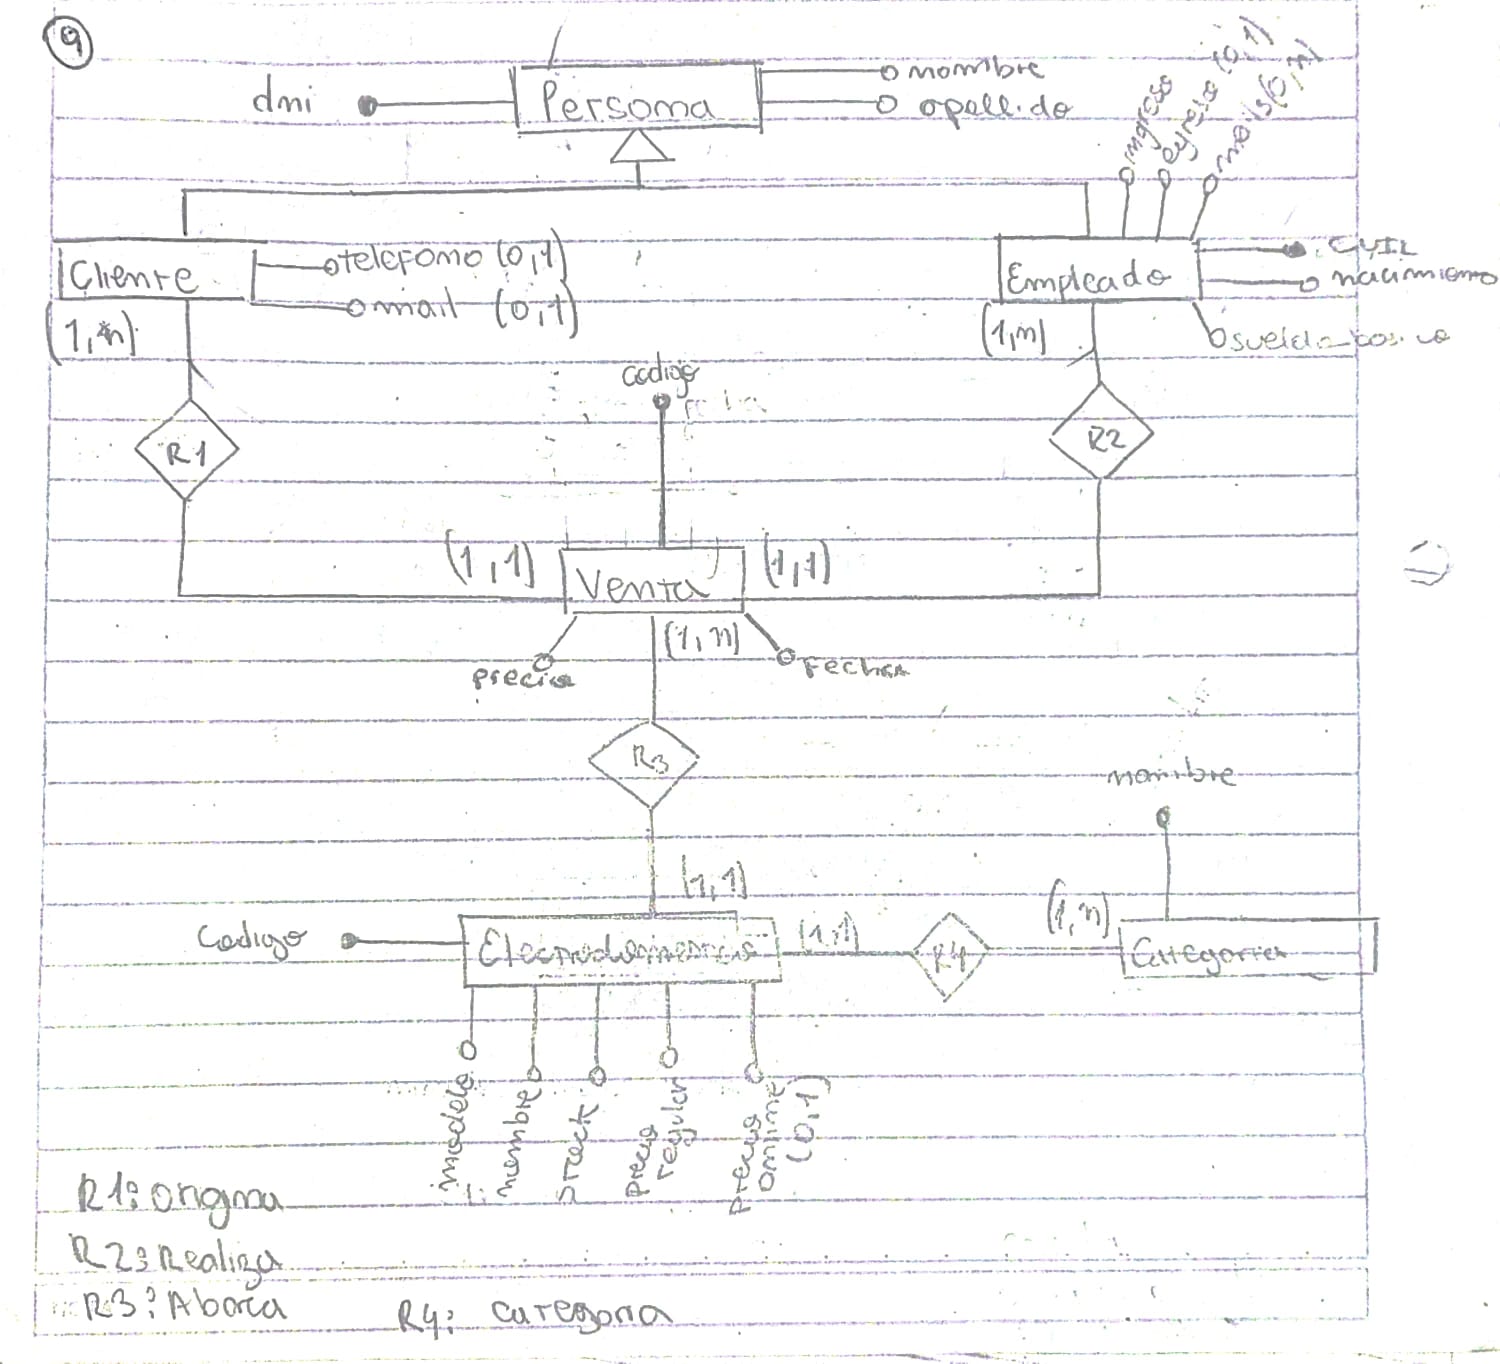 9
dni
Persona
nombre
apellido
ingreso
egreso (0,1)
mails (0,n)
Cliente
telefono (0,1)
mail (0,1)
(1,n)
Empleado
CUIL
nacimiento
(1,n)
R1
codigo
R2
(1,1)
Venta
(1,1)
(1,n)
precio
Fecha
R3
nombre
(1,1)
Codigo
Electrodomestico
(1,1)
R4
(1,n)
Categoria
modelo
nombre
stock
precio
regular
precio
online
(0,1)
R1: origina
R2: Realiza
R3: Abarca
R4: categoria